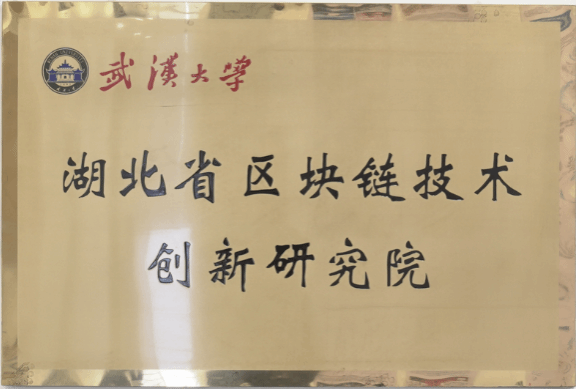 武漢大學
湖北省区块链技术
创新研究院